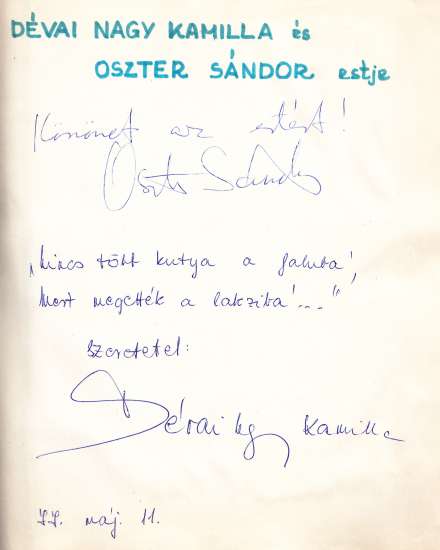 DÉVAI NAGY KAMILLA és
OSZTER SÁNDOR estje
Köszönet az estért!
Oszter Sándor
„Nincs több kutya a faluba',
Mert megették a lakziba'..."
Szeretetel:
Dévai Ng Kamilla
77. máj. 11.